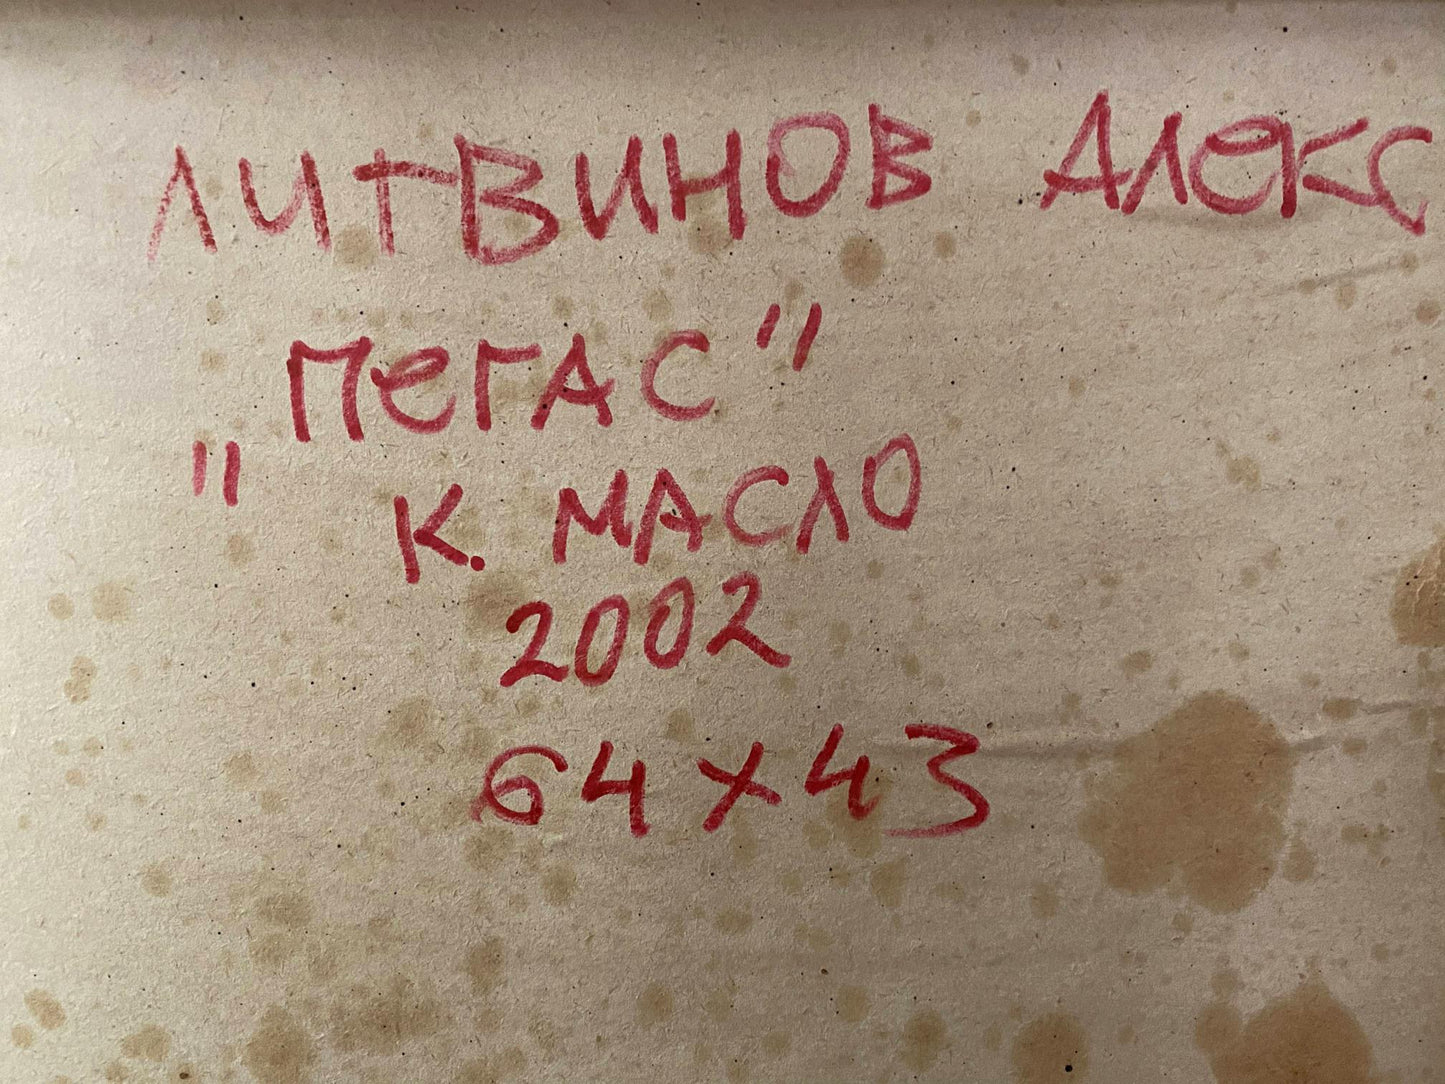 ЛИТВИНОВ АЛЕКС
"ПЕГАС"
К. МАСЛО
2002
64х43